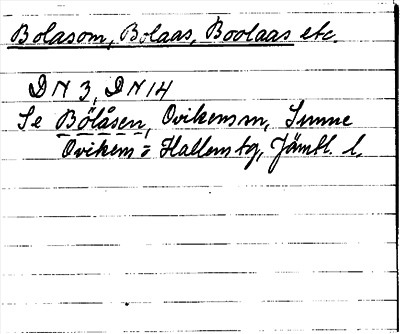 Bolasom, Bolaas, Boolaas etc.
DN 3, DN 14
Se Bölåsen, Ovikens sn, Sunne
Ovikens o Hallens tg, Jämtl. l.